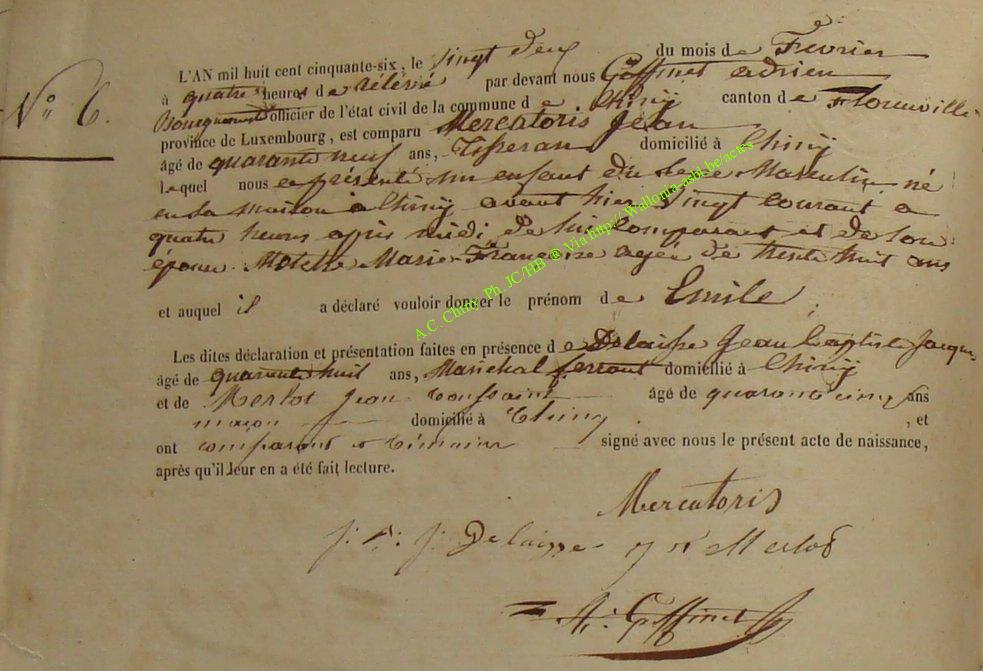 N° 6.
L'AN mil huit cent cinquante-six, le vingt deux du mois de Fevrier
à quatre heures de relevé par devant nous Goffinet adrien
Bourguemestre officier de l'état civil de la commune de Chiny canton de Florenville
province de Luxembourg, est comparu Mercatoris Jean
âgé de quarante neuf ans, Tisserand domicilié à Chiny
lequel nous a présenté un enfant du sexe Masculin né
en sa maison à Chiny avant hier vingt courant a
quatre heures après midi de lui comparant et de son
épouse Motelle Marie Françoise agée de trente huit ans
et auquel il a déclaré vouloir donner le prénom de Emile.
Les dites déclaration et présentation faites en présence de Delaisse Jean Baptiste Jacques
âgé de quarante huit ans, Maréchal ferrant domicilié à Chiny
et de Merlot Jean Toussaint âgé de quarante cinq ans
maçon domicilié à Chiny , et
ont comparant et témoins signé avec nous le présent acte de naissance,
après qu'il leur en a été fait lecture.
Mercatoris
J: B: J: Delaisse J T Merlot
A: Goffinet
A.C. Chiny Ph. JC/HB ® Via http://Wallonia-asbl.be/actes